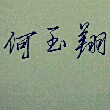 何玉翔